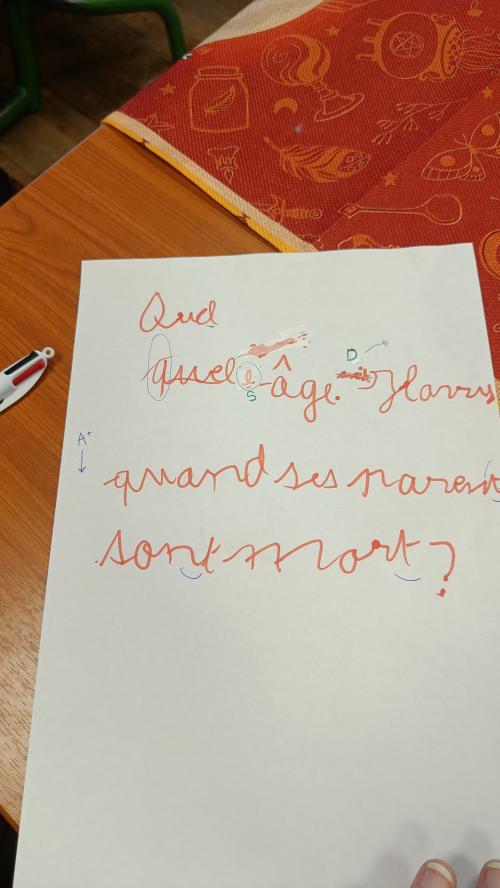 Quel
quel e âge. Harry
D
S
A+
quand ses parent
sont mort ?